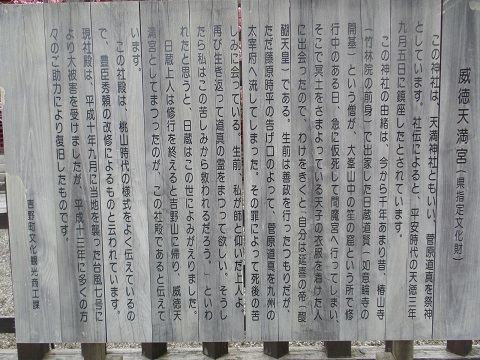 威徳天満宮（県指定文化財）
この神社は、天満神社ともいい、菅原道真を祭神
としています。社伝によると、平安時代の天徳三年
九月五日に鎮座したとされています。
この神社の由緒は、今から千年あまり昔、椿山寺
（竹林院の前身）で出家した日蔵道賢（如意輪寺の
開基）という僧が、大峯山中の笙の窟という所で修
行中のある日、急に仮死して閻魔宮へ行ってしまい、
そこで冥土をさまよっている天子の衣服を着けた人
に出会ったので、わけをきくと「自分は延喜の帝（醍
醐天皇）である。生前は善政を行ったつもりだが、
ただ藤原時平の告げ口のよって、菅原道真を九州の
太宰府へ流してしまった。その罪によって死後の苦
しみに会っている。生前、私が師と仰いだ上人よ、
再び生き返って道真の霊をまつって欲しい。そうし
たら私はこの苦しみから救われるだろう。」といわ
れたと思うと、日蔵はこの世によみがえりました。
日蔵上人は修行を終えると吉野山に帰り、威徳天
満宮としてまつったのが、この社殿であると伝えて
います。
この社殿は、桃山時代の様式をよく伝えているの
で、豊臣秀頼の改修によるものと云われています。
現社殿は、平成十年九月に当地を襲った台風七号に
より大被害を受けましたが、平成十三年に多くの方
々のご助力により復旧したものです。
吉野町文化観光商工課